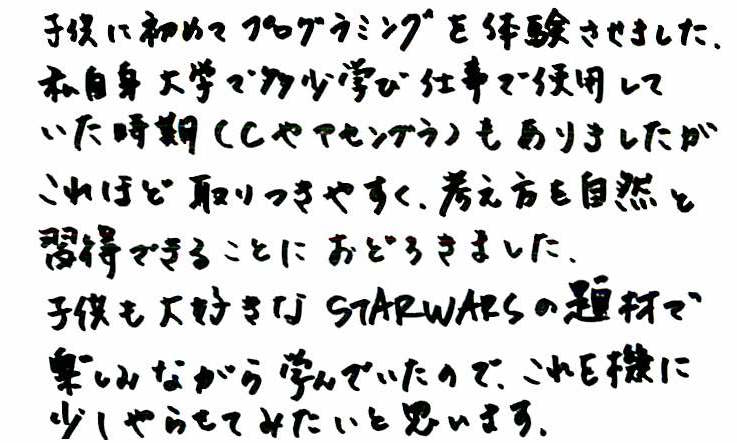 子供に初めてプログラミングを体験させました.
私自身 大学で多少学び 仕事で使用して
いた時期(Cやアセンブラ)もありましたが
これほど取りつきやすく、考え方を自然と
習得できることにおどろきました.
子供も大好きなSTARWARSの題材で
楽しみながら学んでいたので、これを機に
少しやらせてみたいと思います.